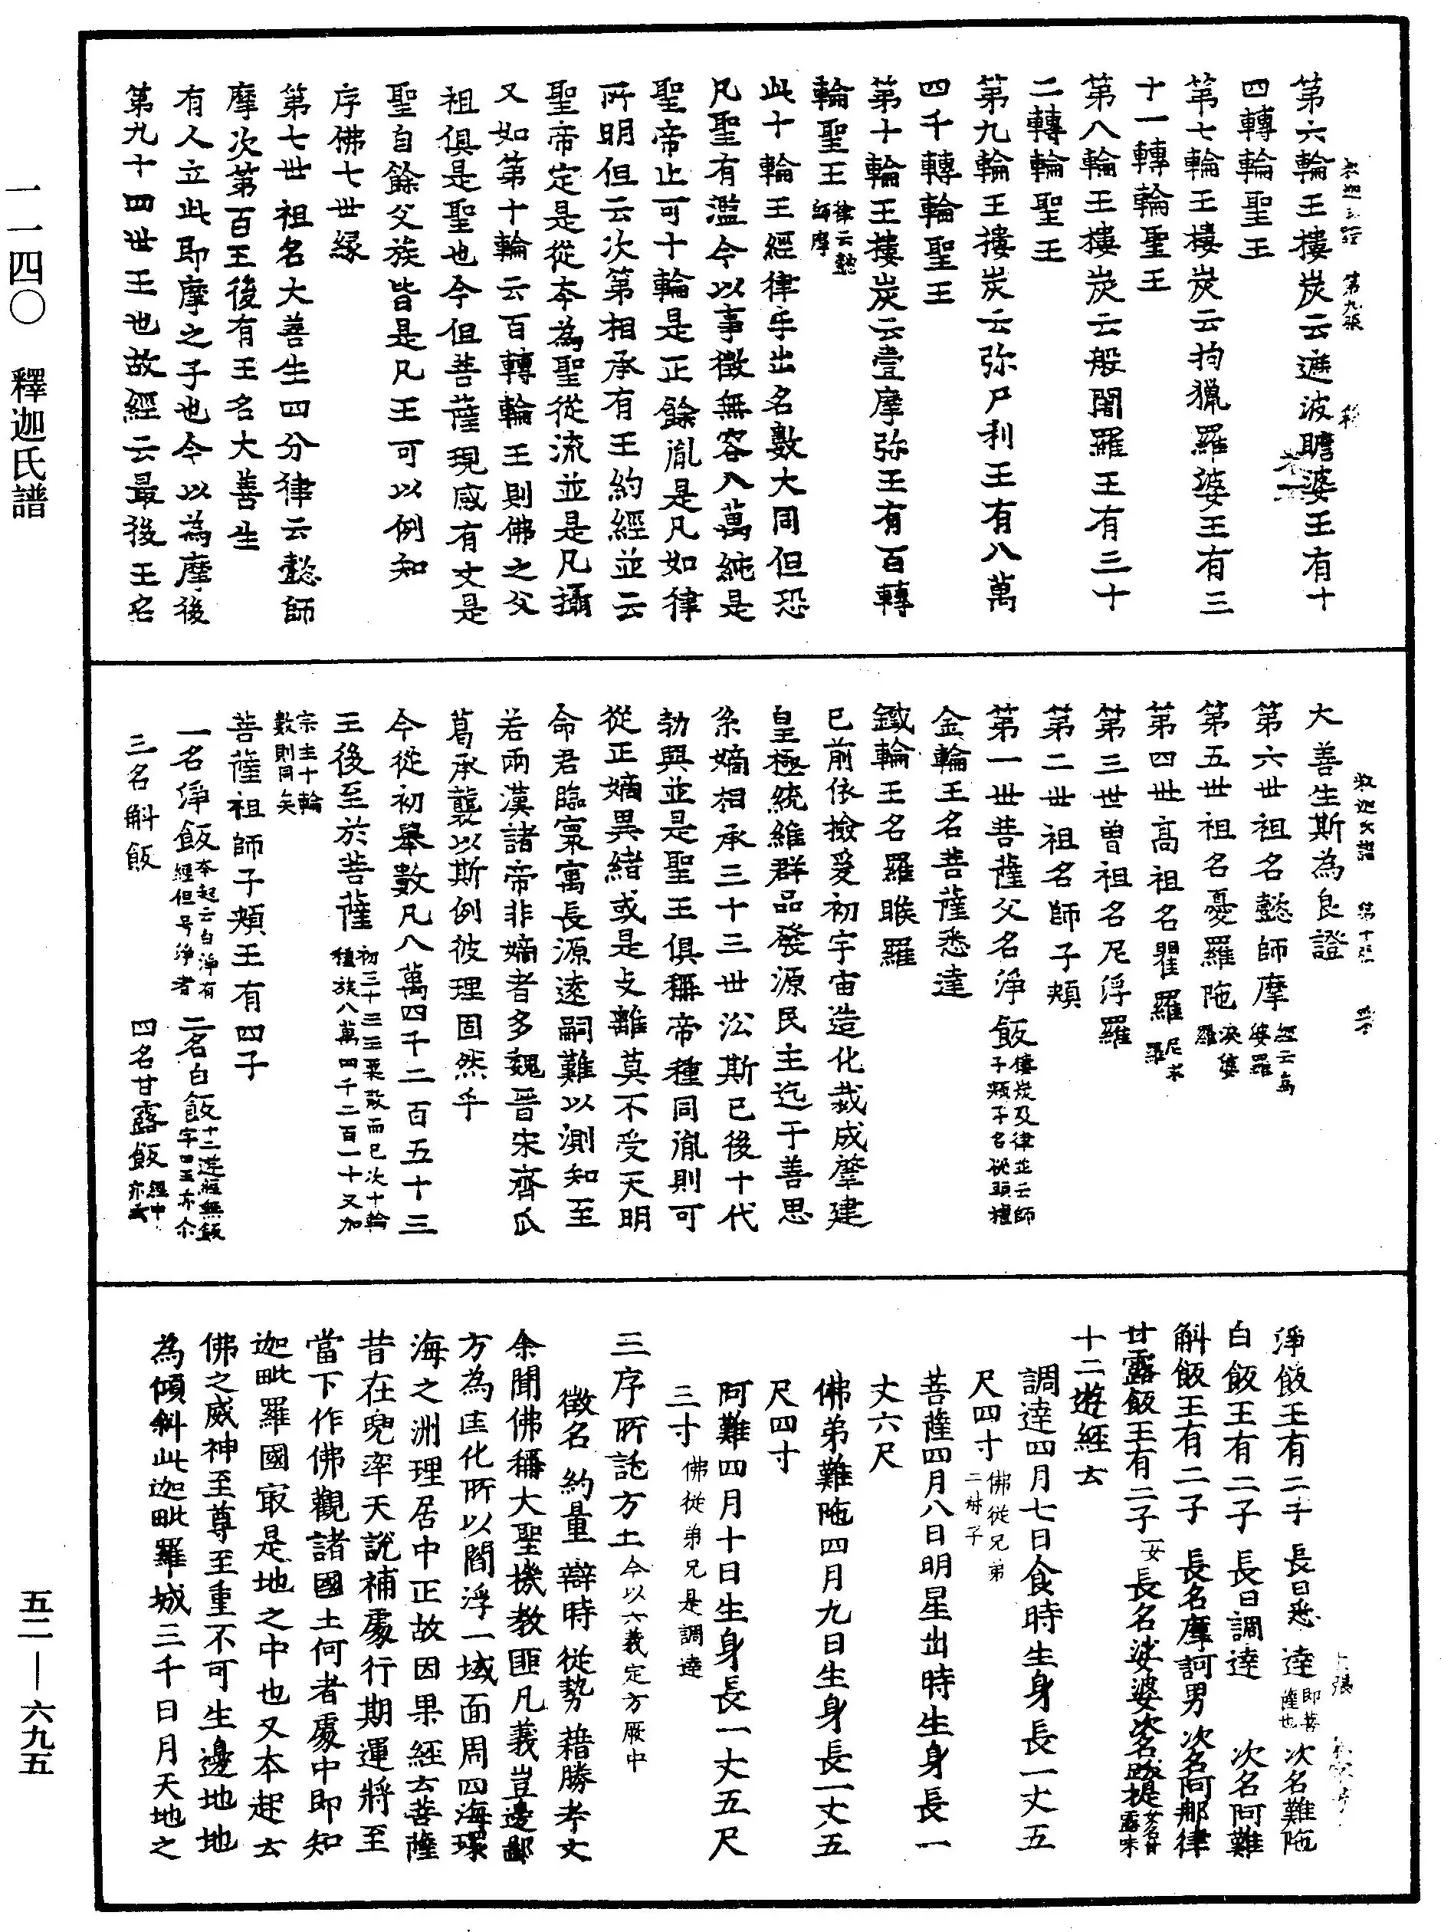 第六輪王樓炭云遮波瞻婆王有十
四轉輪聖王
第七輪王樓炭云拘獵羅婆王有三
十一轉輪聖王
第八輪王樓炭云般闍羅王有三十
二轉輪聖王
第九輪王樓炭云弥尸利王有八萬
四千轉輪聖王
第十輪王樓炭云壹摩弥王有百轉
輪聖王律云懿師摩
此十輪王經律乎出名數大同但恐
凡聖有濫今以事徵無容八萬純是
聖帝止可十輪是正餘胤是凡如律
所明但云次第相承有王約經並云
聖帝定是從本為聖從流並是凡攝
又如第十輪云百轉輪王則佛之父
祖俱是聖也今但菩薩現感有文是
聖自餘父族皆是凡王可以例知
序佛七世緣
第七世祖名大善生四分律云懿師
摩次第百王後有王名大善生
有人立此即摩之子也今以為摩後
第九十四世王也故經云最後王名
大善生斯為良證
第六世祖名懿師摩經云烏婆羅
第五世祖名憂羅陁淚婆羅
第四世高祖名瞿羅尼求羅
第三世曾祖名尼浮羅
第二世祖名師子頰
第一世菩薩父名淨飯樓炭及律並云師子頰子名悅頭檀
金輪王名菩薩悉達
鐵輪王名羅睺羅
已前依撿爰初宇宙造化裁成肇建
皇極統維群品發源民主迄于善思
糸嫡相承三十三世訟斯已後十代
勃興並是聖王俱稱帝種同胤則可
從正嫡異緒或是支離莫不受天明
命君臨寰㝢長源遠嗣難以測知至
若兩漢諸帝非嫡者多魏晉宋齊瓜
葛承襲以斯例彼理固然乎
今從初舉數凡八萬四千二百五十三
王後至於菩薩初三十三王粟散而已次十輪種族八萬四千二百一十又加
宗主十輪數則同矣
菩薩祖師子頰王有四子
一名淨飯本起云白淨有經但号淨者 二名白飯十二遊經無飯字四王亦尒
三名斛飯 四名甘露飯經中亦云
淨飯王有二子 長曰悉達即菩薩也 次名難陁
白飯王有二子 長曰調達 次名阿難
斛飯王有二子 長名摩訶男 次名阿那律
甘露飯王有二子一女 長名婆婆 次名跋提女名甘露味
十二遊經云
調達四月七日食時生身長一丈五
尺四寸佛從兄弟二姊子
菩薩四月八日明星出時生身長一
丈六尺
佛弟難陁四月九日生身長一丈五
尺四寸
阿難四月十日生身長一丈五尺
三寸佛從弟兄是調達
三序所託方土今以六義定方厥中
徵名 約量 辯時 從勢 藉勝 考文
余聞佛稱大聖機教匪凡義豈邊鄙
方為匡化所以閻浮一域面周四海環
海之洲理居中正故因果經云菩薩
昔在兜率天說補處行期運將至
當下作佛觀諸國土何者處中即知
迦毗羅國冣是地之中也又本起云
佛之威神至尊至重不可生邊地地
為傾斜此迦毗羅城三千日月天地之
一一四〇 釋迦氏譜
五二——六九五
釋迦氏譜 第十張
第九張